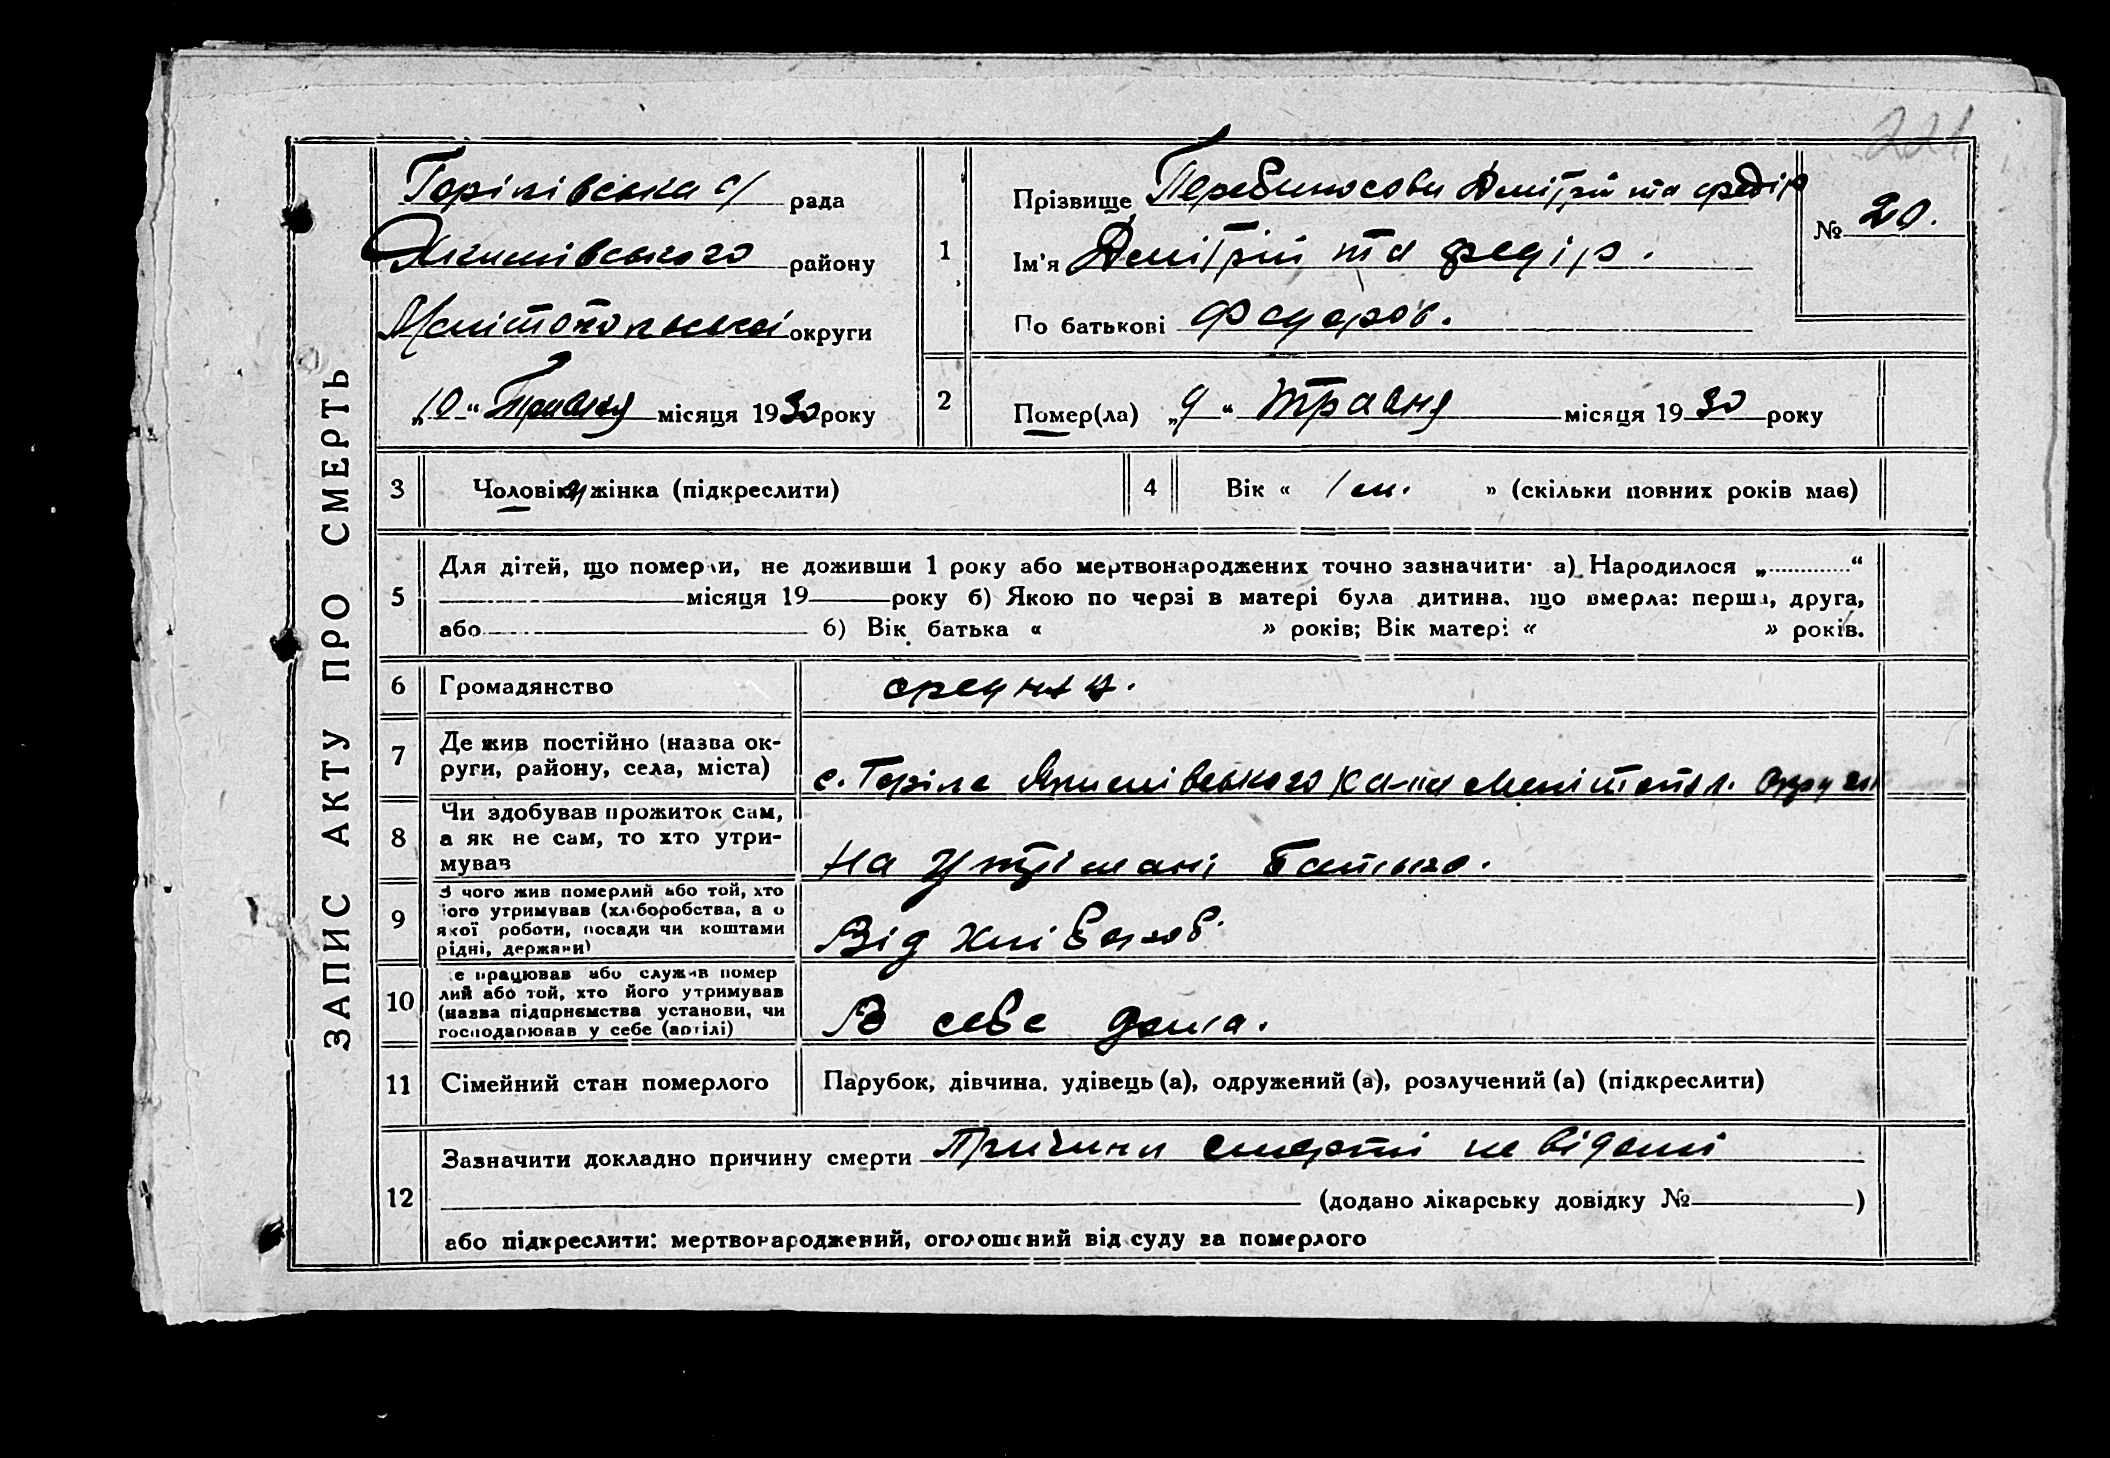 221
ЗАПИС АКТУ ПРО СМЕРТЬ
Горілівська с/ рада
Якимівського району
Мелітопольської округи
„10“ Травня місяця 1930 року
1
Прізвище Дмітрій та Федір
Ім'я Дмітрій та Федір.
По батькові Федоров.
№ 20.
2
Помер(ла) „9“ Травня місяця 1930 року
3 Чоловік, жінка (підкреслити)
4 Вік « 1 м. » (скільки повних років має)
5
Для дітей, що померли, не доживши 1 року або мертвонароджених точно зазначити: а) Народилося „ “
місяця 19 року б) Якою по черзі в матері була дитина, що вмерла: перша, друга,
або б) Вік батька « » років; Вік матері « » років.
6 Громадянство
7 Де жив постійно (назва ок-
руги, району, села, міста)
с. Горіле Якимівського р-на Мелітопол. округи
8
Чи здобував прожиток сам,
а як не сам, то хто утри-
мував
на утрімані батька.
9
З чого жив померлий або той, хто
його утримував (хліборобства, а о
якої роботи, посади чи коштами
рідні, держави)
Від хлібороб.
10
Де працював або служив помер
лий або той, хто його утримував
(назва підприємства установи, чи
господарював у себе (артілі)
В себе дома.
11 Сімейний стан померлого Парубок, дівчина, удівець (а), одружений (а), розлучений (а) (підкреслити)
12
Зазначити докладно причину смерти Причини смерті не відомі
(додано лікарську довідку № )
або підкреслити: мертвонароджений, оголошений від суду за померлого